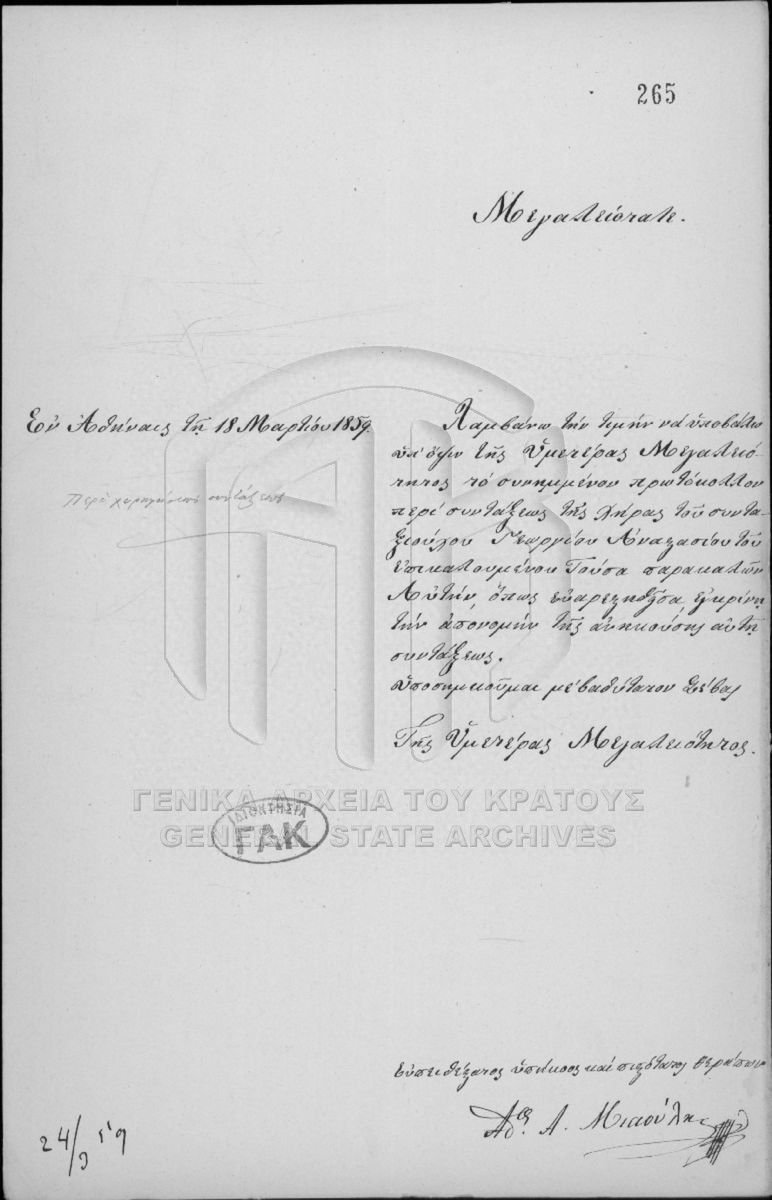 265
Μεγαλειότατε.
Ἐν Ἀθήναις τῇ 18 Μαρτίου 1859.
Περὶ χορηγήσεως συντάξεως
Λαμβάνω τὴν τιμὴν νὰ ὑποβάλω
ὑπ' ὄψιν τῆς Ὑμετέρας Μεγαλειό-
τητος τὸ συνημμένον πρωτόκολλον
περὶ συντάξεως τῆς χήρας τοῦ συντα-
ξιούχου Γεωργίου Ἀναστασίου τοῦ
ἐπικαλουμένου Γούσα παρακαλῶν
Αὐτὴν, ὅπως εὐαρεστηθεῖσα, ἐγκρίνῃ
τὴν ἀπονομὴν τῆς ἀνηκούσης αὐτῇ
συντάξεως.
Ὑποσημειοῦμαι μὲ βαθύτατον σέβας
Τῆς Ὑμετέρας Μεγαλειότητος.
ΓΕΝΙΚΑ ΑΡΧΕΙΑ ΤΟΥ ΚΡΑΤΟΥΣ
GENERAL STATE ARCHIVES
ΙΔΙΟΚΤΗΣΙΑ
ΓΑΚ
εὐπειθέστατος ὑπήκοος καὶ πιστότατος θεράπων
Α. Μιαούλης
24/3 59